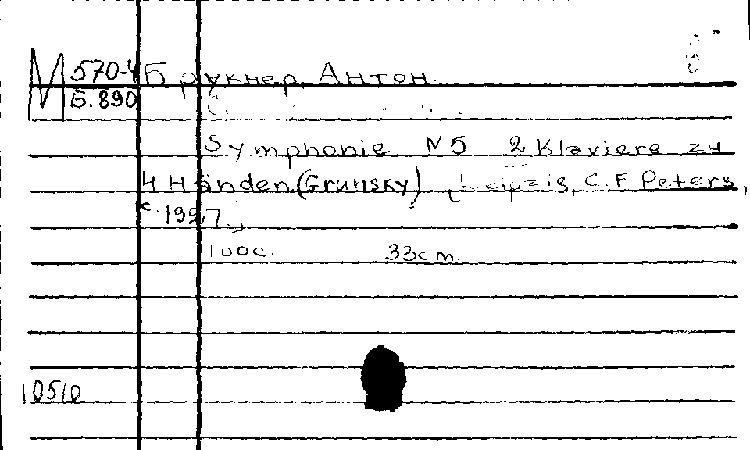 М 570-4 Брукнер, Антон.
Б.890
Symphonie N5 2 Klaviere zu
4 Händen. (Grunsky) Leipzig, C.F. Peters,
c. 1927,
100c. 33cm
10510